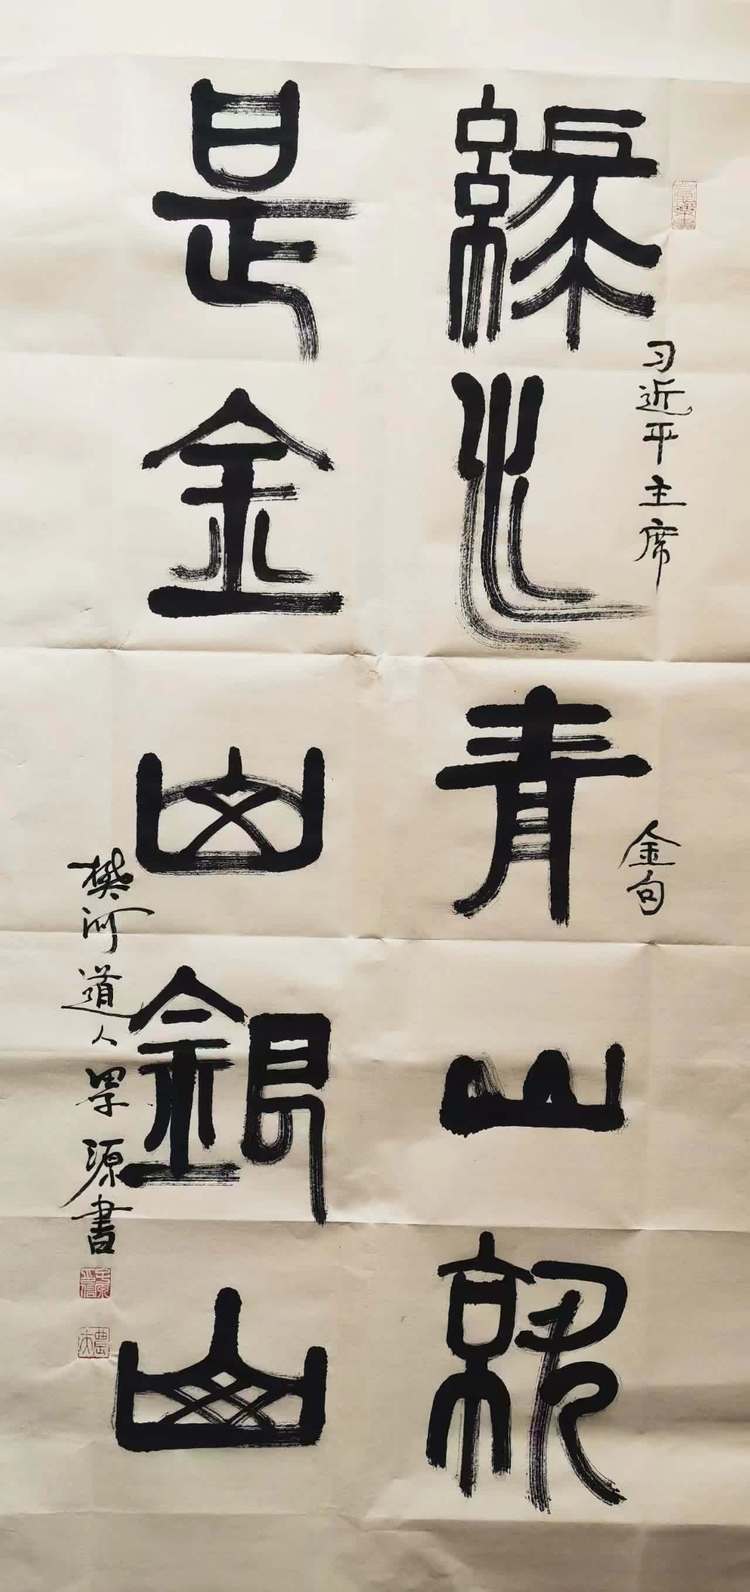 習近平主席
金句
綠水青山就
是金山銀山
樊河道人源書